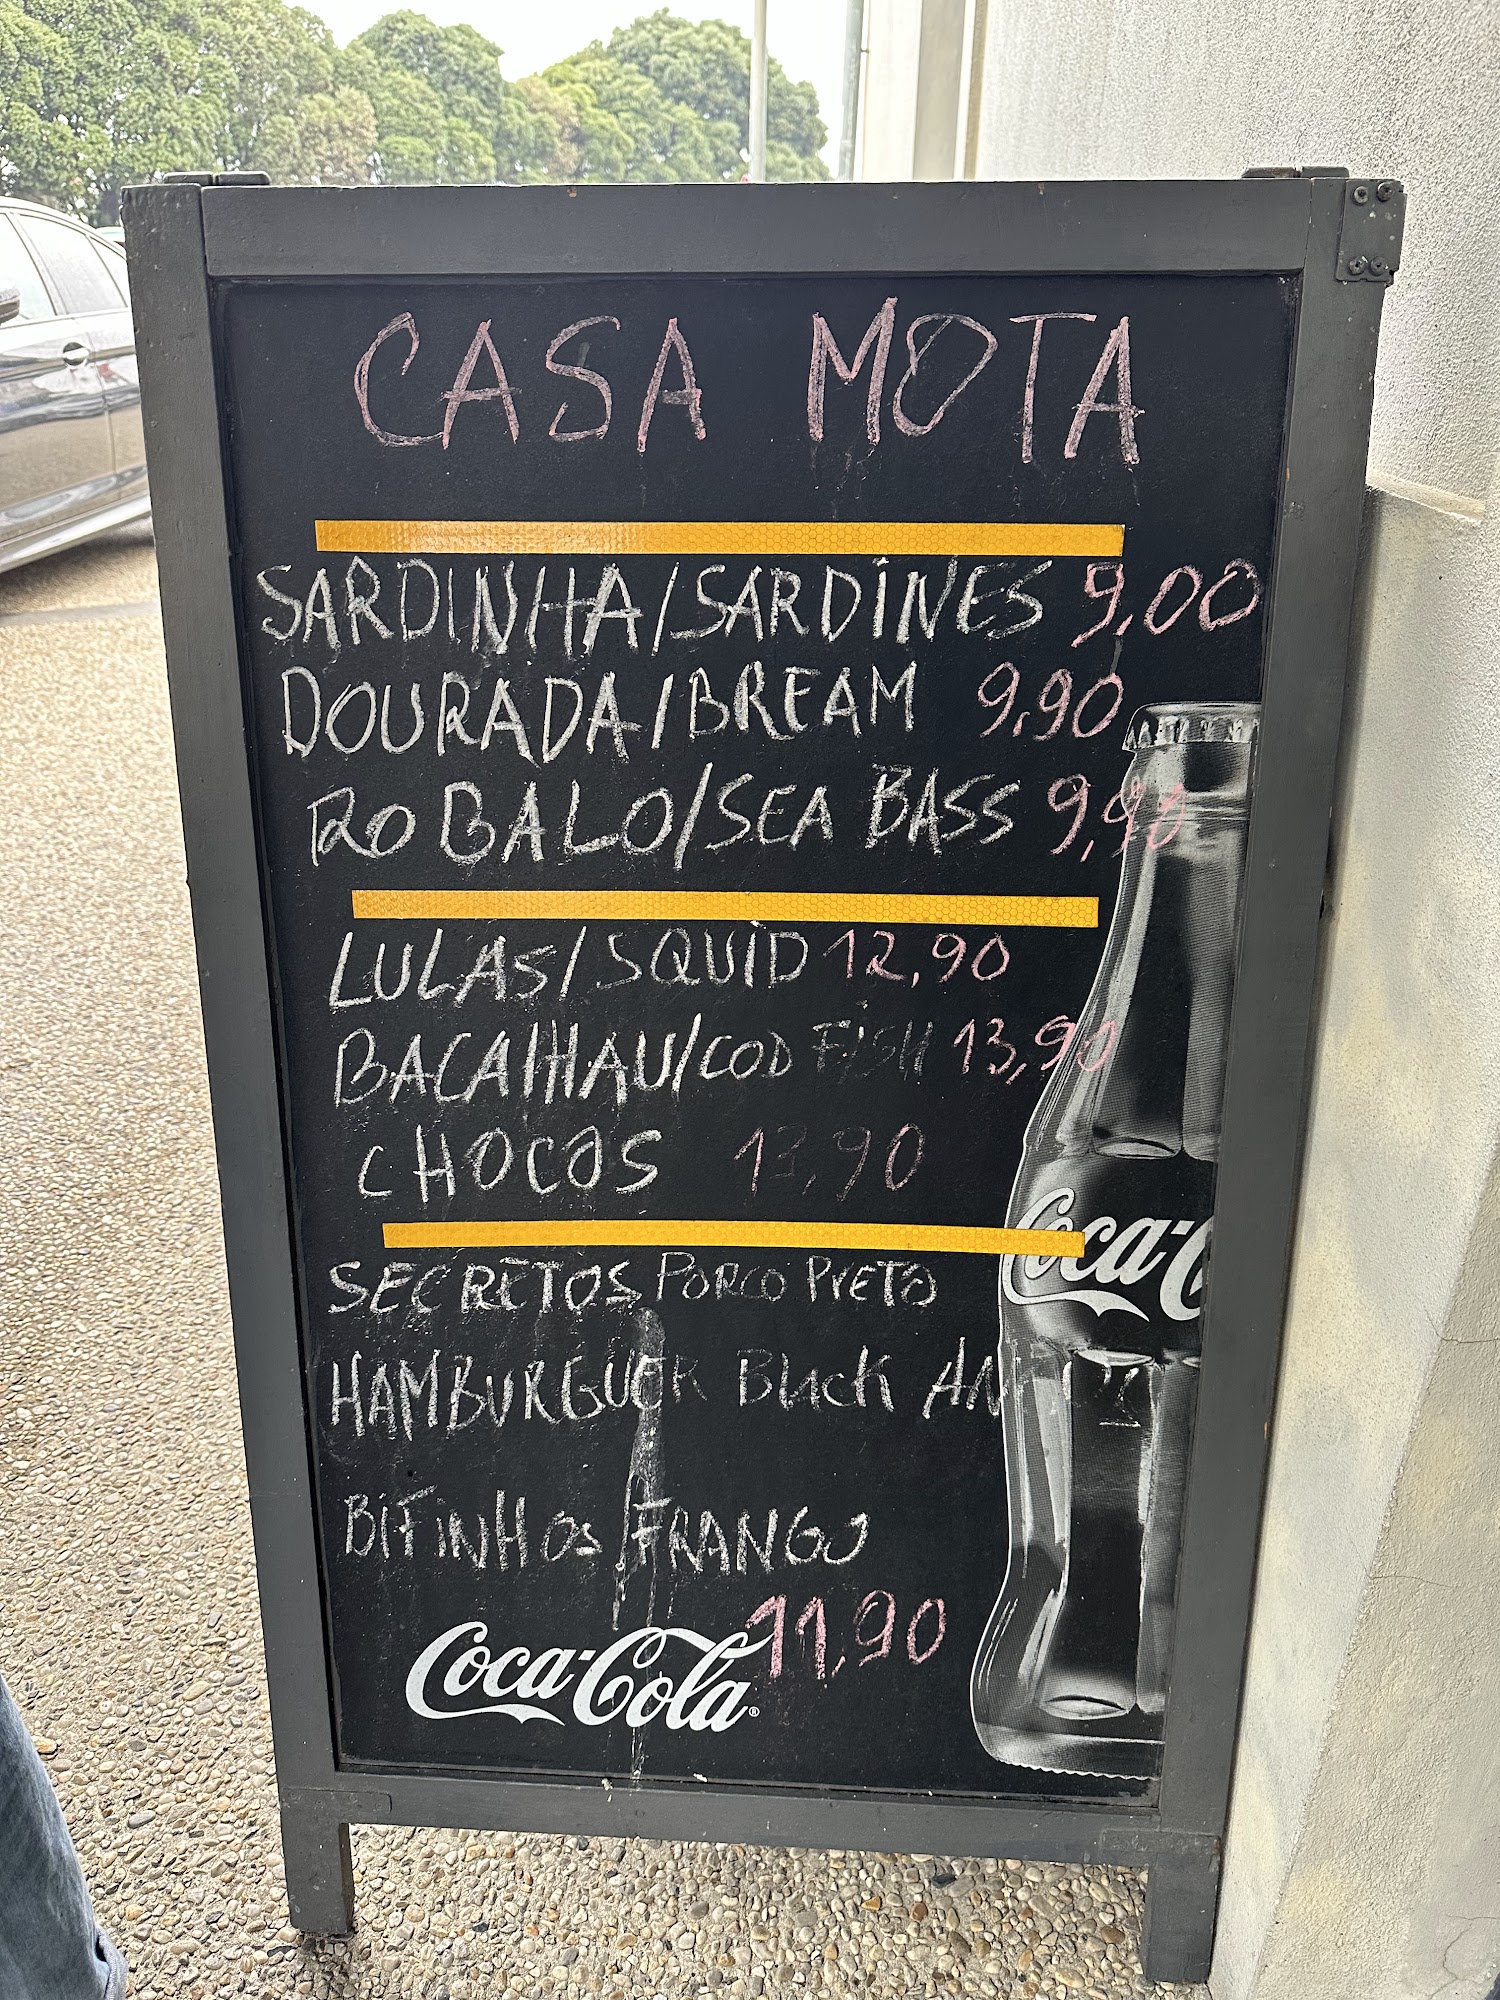 CASA MOTA
SARDINHA/SARDINES 9,00
DOURADA/BREAM 9,90
ROBALO/SEA BASS 9,90
LULAS/SQUID 12,90
BACALHAU/COD FISH 13,90
CHOCOS 13,90
SECRETOS PORCO PRETO
HAMBURGUER Black AN
BIFINHOS FRANGO
11,90
Coca-Cola
Coca-C